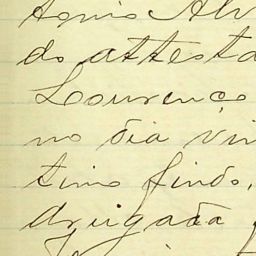 tonio Alv
do attesta
Lourenço
no dia vin
timo findo,
drugada